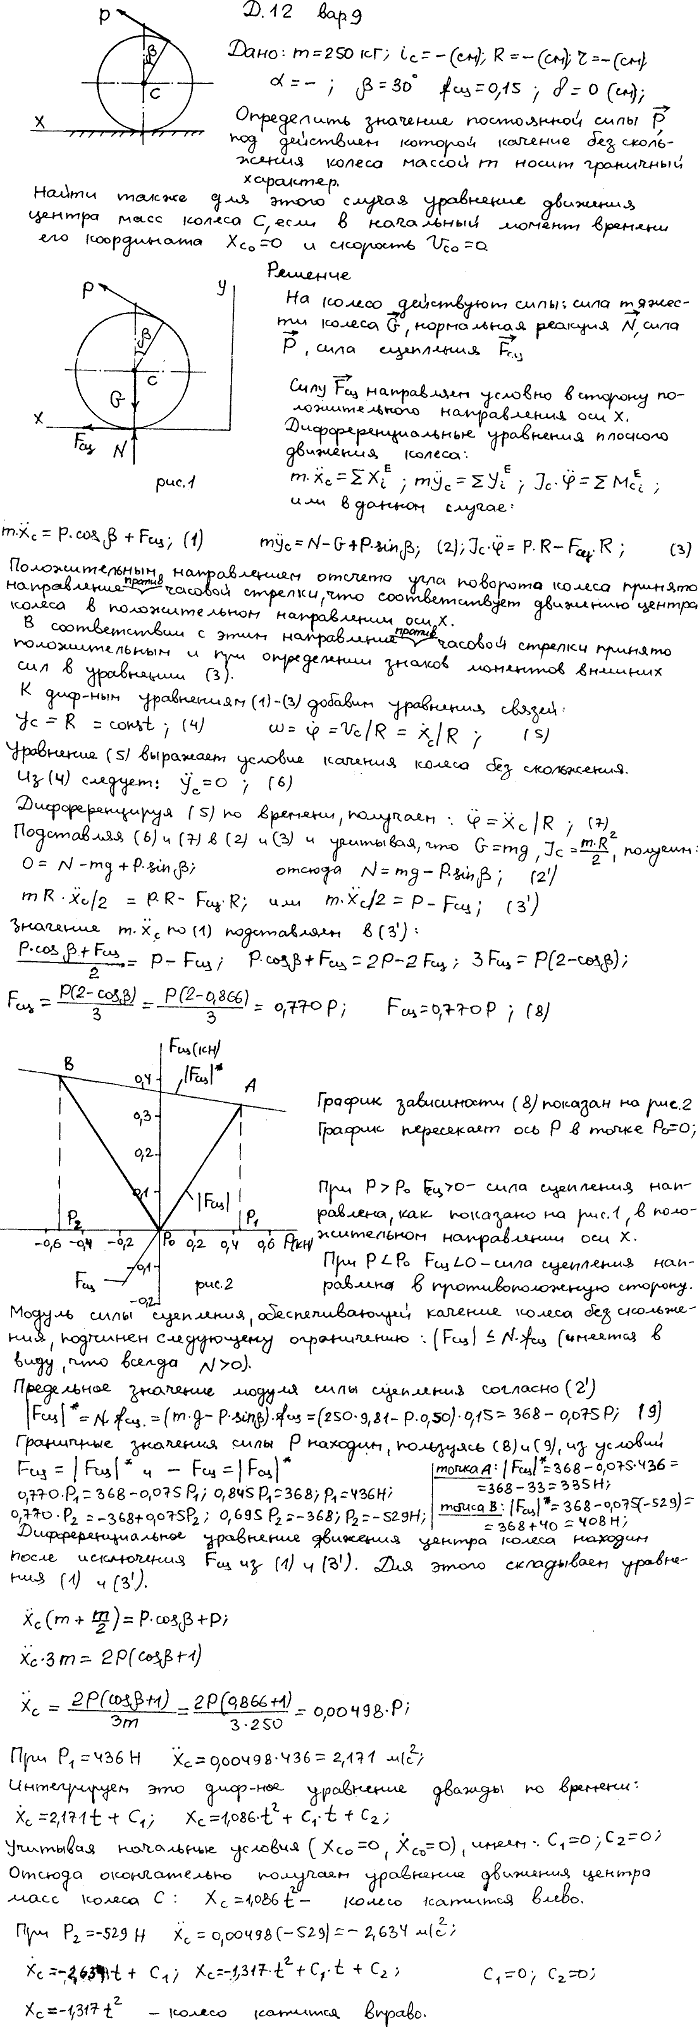 Д.12 вар 9
P
β
C
X
Дано: m=250 кг; i_c=−(см); R=−(см); r=−(см)
α=− ; β=30° f_сц=0,15 ; δ=0 (см);
Определить значение постоянной силы P,
под действием которой качение без сколь-
жения колеса массой m носит граничный
характер.
Найти также для этого случая уравнение движения
центра масс колеса C, если в начальный момент времени
его координата X_C0=0 и скорость V_C0=0.
Решение
P
y
β
C
G
X
F_сц
N
рис.1
На колесо действуют силы: сила тяжес-
ти колеса G, нормальная реакция N, сила
P, сила сцепления F_сц
Силу F_сц направляем условно в сторону по-
ложительного направления оси X.
Дифференциальные уравнения плоского
движения колеса:
m·ẍ_c = ΣX_i^E ; mÿ_c = ΣY_i^E ; J_c·φ̈ = ΣM_ci^E ;
или в данном случае:
m·ẍ_c = P·cosβ + F_сц; (1) mÿ_c = N−G+P·sinβ; (2); J_c·φ̈ = P·R−F_сц·R ; (3)
Положительным направлением отсчета угла поворота колеса принято
направление против часовой стрелки, что соответствует движению центра
колеса в положительном направлении оси X.
В соответствии с этим направление против часовой стрелки принято
положительным и при определении знаков моментов внешних
сил в уравнении (3).
К диф-ным уравнениям (1)-(3) добавим уравнения связей:
y_c = R = const ; (4) ω = φ̇ = V_c/R = ẋ_c/R ; (5)
Уравнение (5) выражает условие качения колеса без скольжения.
Из (4) следует: ÿ_c=0 ; (6)
Дифференцируя (5) по времени, получаем : φ̈ = ẍ_c/R ; (7)
Подставляя (6) и (7) в (2) и (3) и учитывая, что G=mg, J_c=m·R²/2, получим:
0 = N−mg+P·sinβ; отсюда N=mg−P·sinβ ; (2')
mR·ẍ_c/2 = P·R−F_сц·R; или m·ẍ_c/2 = P−F_сц; (3')
Значение m·ẍ_c по (1) подставляем в (3'):
(P·cosβ+F_сц)/2 = P−F_сц; P·cosβ+F_сц=2P−2F_сц; 3F_сц=P(2−cosβ);
F_сц = P(2−cosβ)/3 = P(2−0,866)/3 = 0,770P; F_сц=0,770P ; (8)
F_сц(кН)
B
A
|F_сц|*
0,4
0,3
0,2
0,1
|F_сц|
P₂
P₀
P₁
-0,6 -0,4 -0,2 0,2 0,4 0,6 P(кН)
-0,1
F_сц
-0,2
рис.2
График зависимости (8) показан на рис.2
График пересекает ось P в точке P₀=0;
При P>P₀ F_сц>0− сила сцепления нап-
равлена, как показано на рис.1, в поло-
жительном направлении оси X.
При P<P₀ F_сц<0−сила сцепления нап-
равлена в противоположную сторону.
Модуль силы сцепления, обеспечивающей качение колеса без скольже-
ния, подчинен следующему ограничению : |F_сц| ≤ N·f_сц (имеется в
виду, что всегда N>0).
Предельное значение модуля силы сцепления согласно (2')
|F_сц|*=N·f_сц.=(m·g−P·sinβ)·f_сц=(250·9,81−P·0,50)·0,15=368−0,075P; (9)
Граничные значения силы P находим, пользуясь (8) и (9), из условий
F_сц = |F_сц|* и −F_сц=|F_сц|*
0,770·P₁=368−0,075P₁; 0,845P₁=368; P₁=436Н;
0,770·P₂=−368+0,075P₂ ; 0,695P₂=−368; P₂=−529Н;
точка A: |F_сц|*=368−0,075·436=
=368−33=335Н;
точка B: |F_сц|*=368−0,075(−529)=
=368+40=408Н;
Дифференциальное уравнение движения центра колеса находим
после исключения F_сц из (1) и (3'). Для этого складываем уравне-
ния (1) и (3').
ẍ_c(m+m/2)=P·cosβ+P;
ẍ_c·3m = 2P(cosβ+1)
ẍ_c = 2P(cosβ+1)/3m = 2P(0,866+1)/3·250 = 0,00498·P;
При P₁=436Н ẍ_c=0,00498·436=2,171 м/с²;
Интегрируем это диф-ное уравнение дважды по времени:
ẋ_c=2,171t+C₁; x_c=1,086·t²+C₁·t+C₂;
Учитывая начальные условия (X_C0=0, Ẋ_C0=0), имеем: C₁=0; C₂=0;
Отсюда окончательно получаем уравнение движения центра
масс колеса C: X_c=1,086t²− колесо катится влево.
При P₂=−529Н ẍ_c=0,00498(−529)=−2,634 м/с²;
ẋ_c=−2,634t+C₁; x_c=−1,317·t²+C₁·t+C₂; C₁=0; C₂=0;
X_c=−1,317t² − колесо катится вправо.